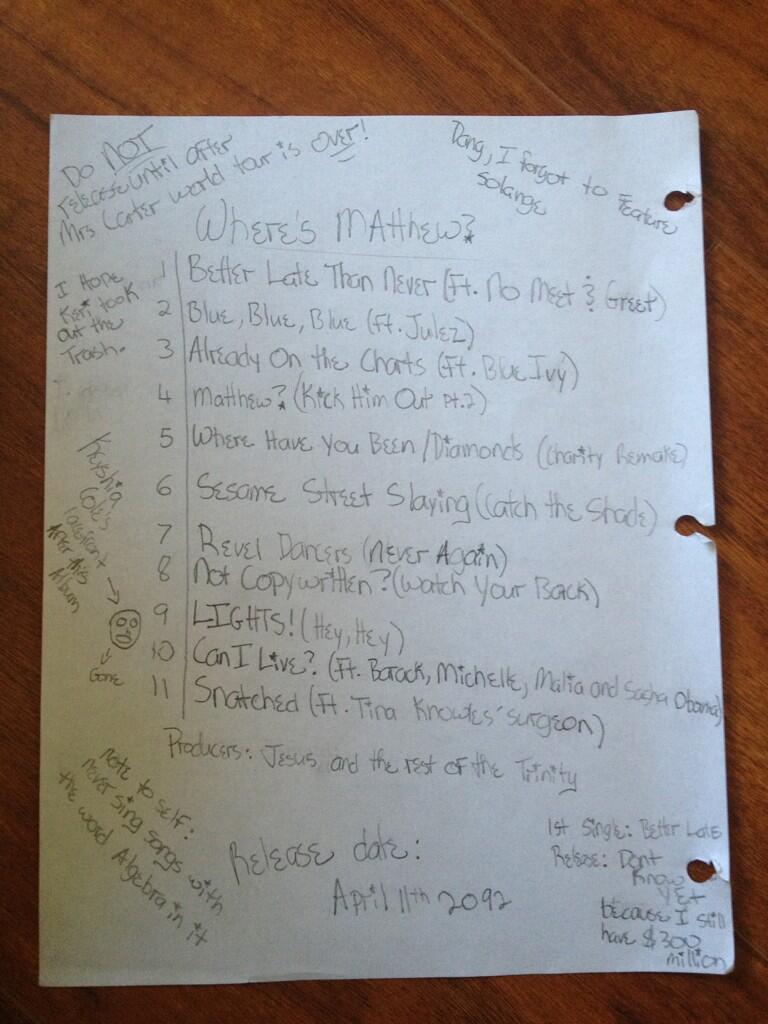 Do NOT
release until after
Mrs Carter world tour is OVER!
Dang, I forgot to feature
Solange
Where's Matthew?
I Hope
Keri took
out the
Trash.
1 Better Late Than Never (Ft. No Meet & Greet)
2 Blue, Blue, Blue (Ft. Julez)
3 Already On the Charts (Ft. Blue Ivy)
4 Matthew? (Kick Him Out Pt.2)
5 Where Have You Been/Diamonds (Charity Remake)
6 Sesame Street Slaying (Catch the Shade)
7 Revel Dancers (Never Again)
8 Not Copywritten? (Watch Your Back)
9 LIGHTS! (Hey, Hey)
10 Can I Live? (Ft. Barack, Michelle, Malia and Sasha Obama)
11 Snatched (Ft. Tina Knowles' surgeon)
Keyshia
Cole's
lacefront
After this
Album
Gone
Producers: Jesus and the rest of the Trinity
Note to self:
never sing songs with
the word Algebra in it
Release date:
April 11th 2092
1st Single: Better Late
Release: Dont
Know
YET
because I still
have $300
million